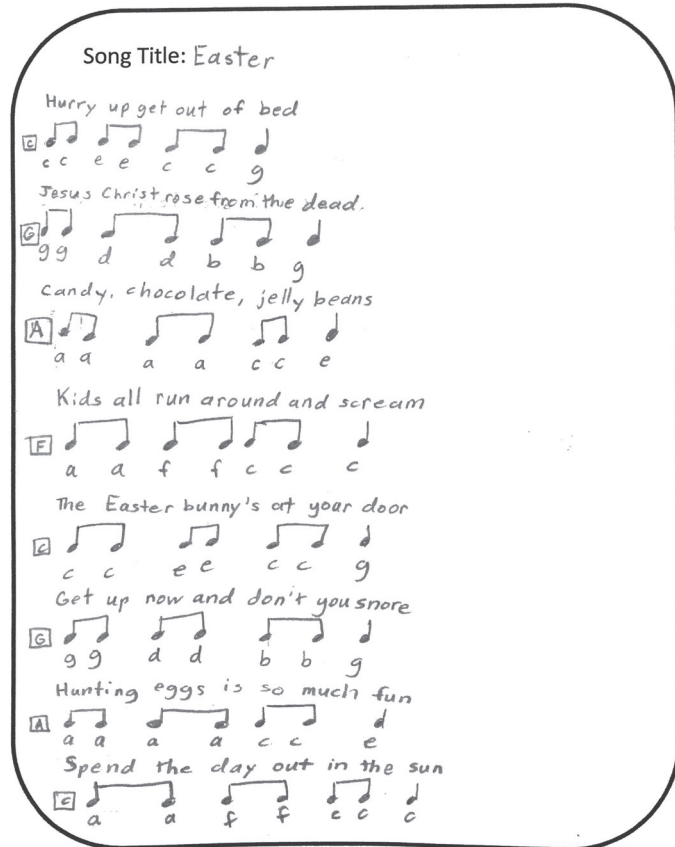 Song Title: Easter
Hurry up get out of bed
C
c c e e c c g
Jesus Christ rose from the dead.
G
g g d d b b g
Candy, chocolate, jelly beans
A
a a a a c c e
Kids all run around and scream
F
a a f f c c c
The Easter bunny's at your door
C
c c e e c c g
Get up now and don't you snore
G
g g d d b b g
Hunting eggs is so much fun
A
a a a a c c e
Spend the day out in the sun
C
a a f f c c c